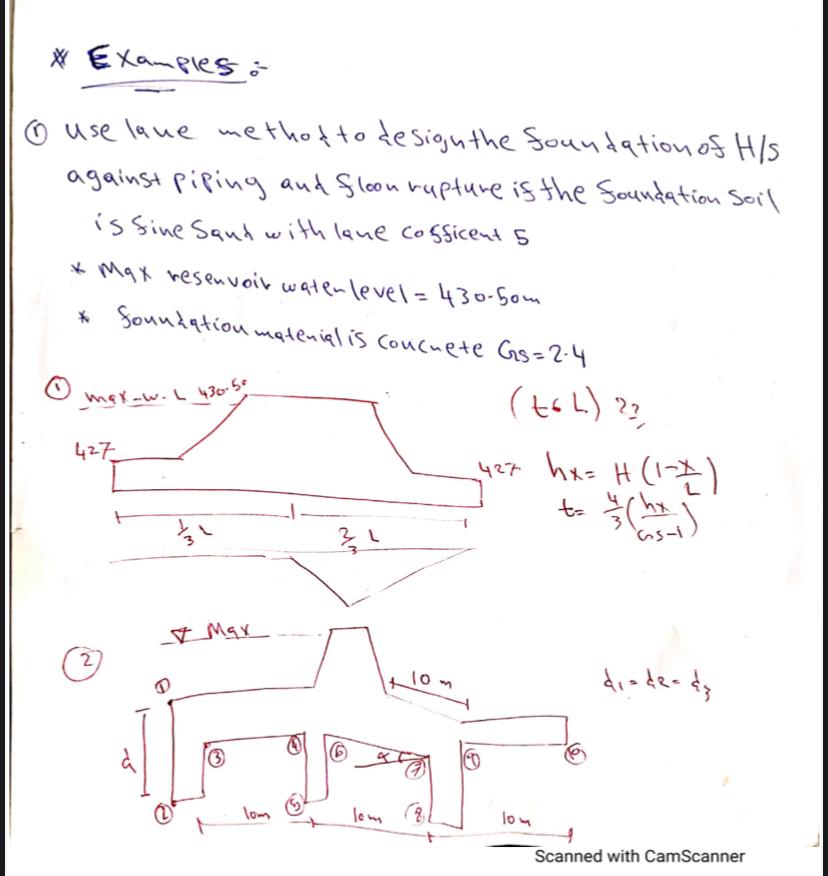 * Examples :-
① use lane method to design the foundation of H/S
against piping and floor rupture if the foundation soil
is fine sand with lane cofficent 5
* Max resenvoir water level = 430.50m
* foundation material is concrete Gs = 2.4
① max-w.L 430.50
(t & L) ??
427
427
hx = H (1-x/L)
t = 4/3 (hx/Gs-1)
1/3 L
2/3 L
② Max
①
10 m
d1 = d2 = d3
d
③ ④ ⑥ α ⑦ ⑨ ⑩
② ⑤ ⑧
10m
10m
10m
Scanned with CamScanner